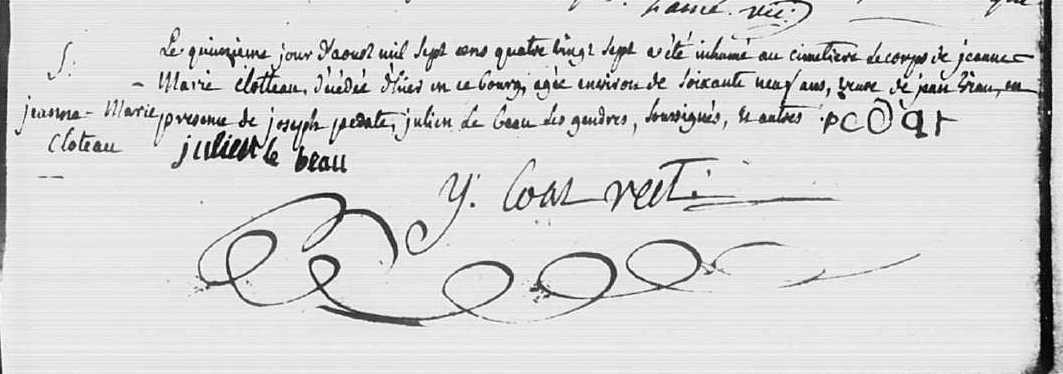 S.
Le quinzieme jour d'aoust mil sept cens quatre vingt sept a été inhumé au cimetiere le corps de jeanne
- Marie Clotteau, décédée d'hier en ce bourg, agée environ de soixante neuf ans, veuve de jean en
jeanne - Marie
Cloteau
presence de joseph pedate, julien Le beau ses gendres, soussignés, et autres
julien le beau
y. Coat rect.